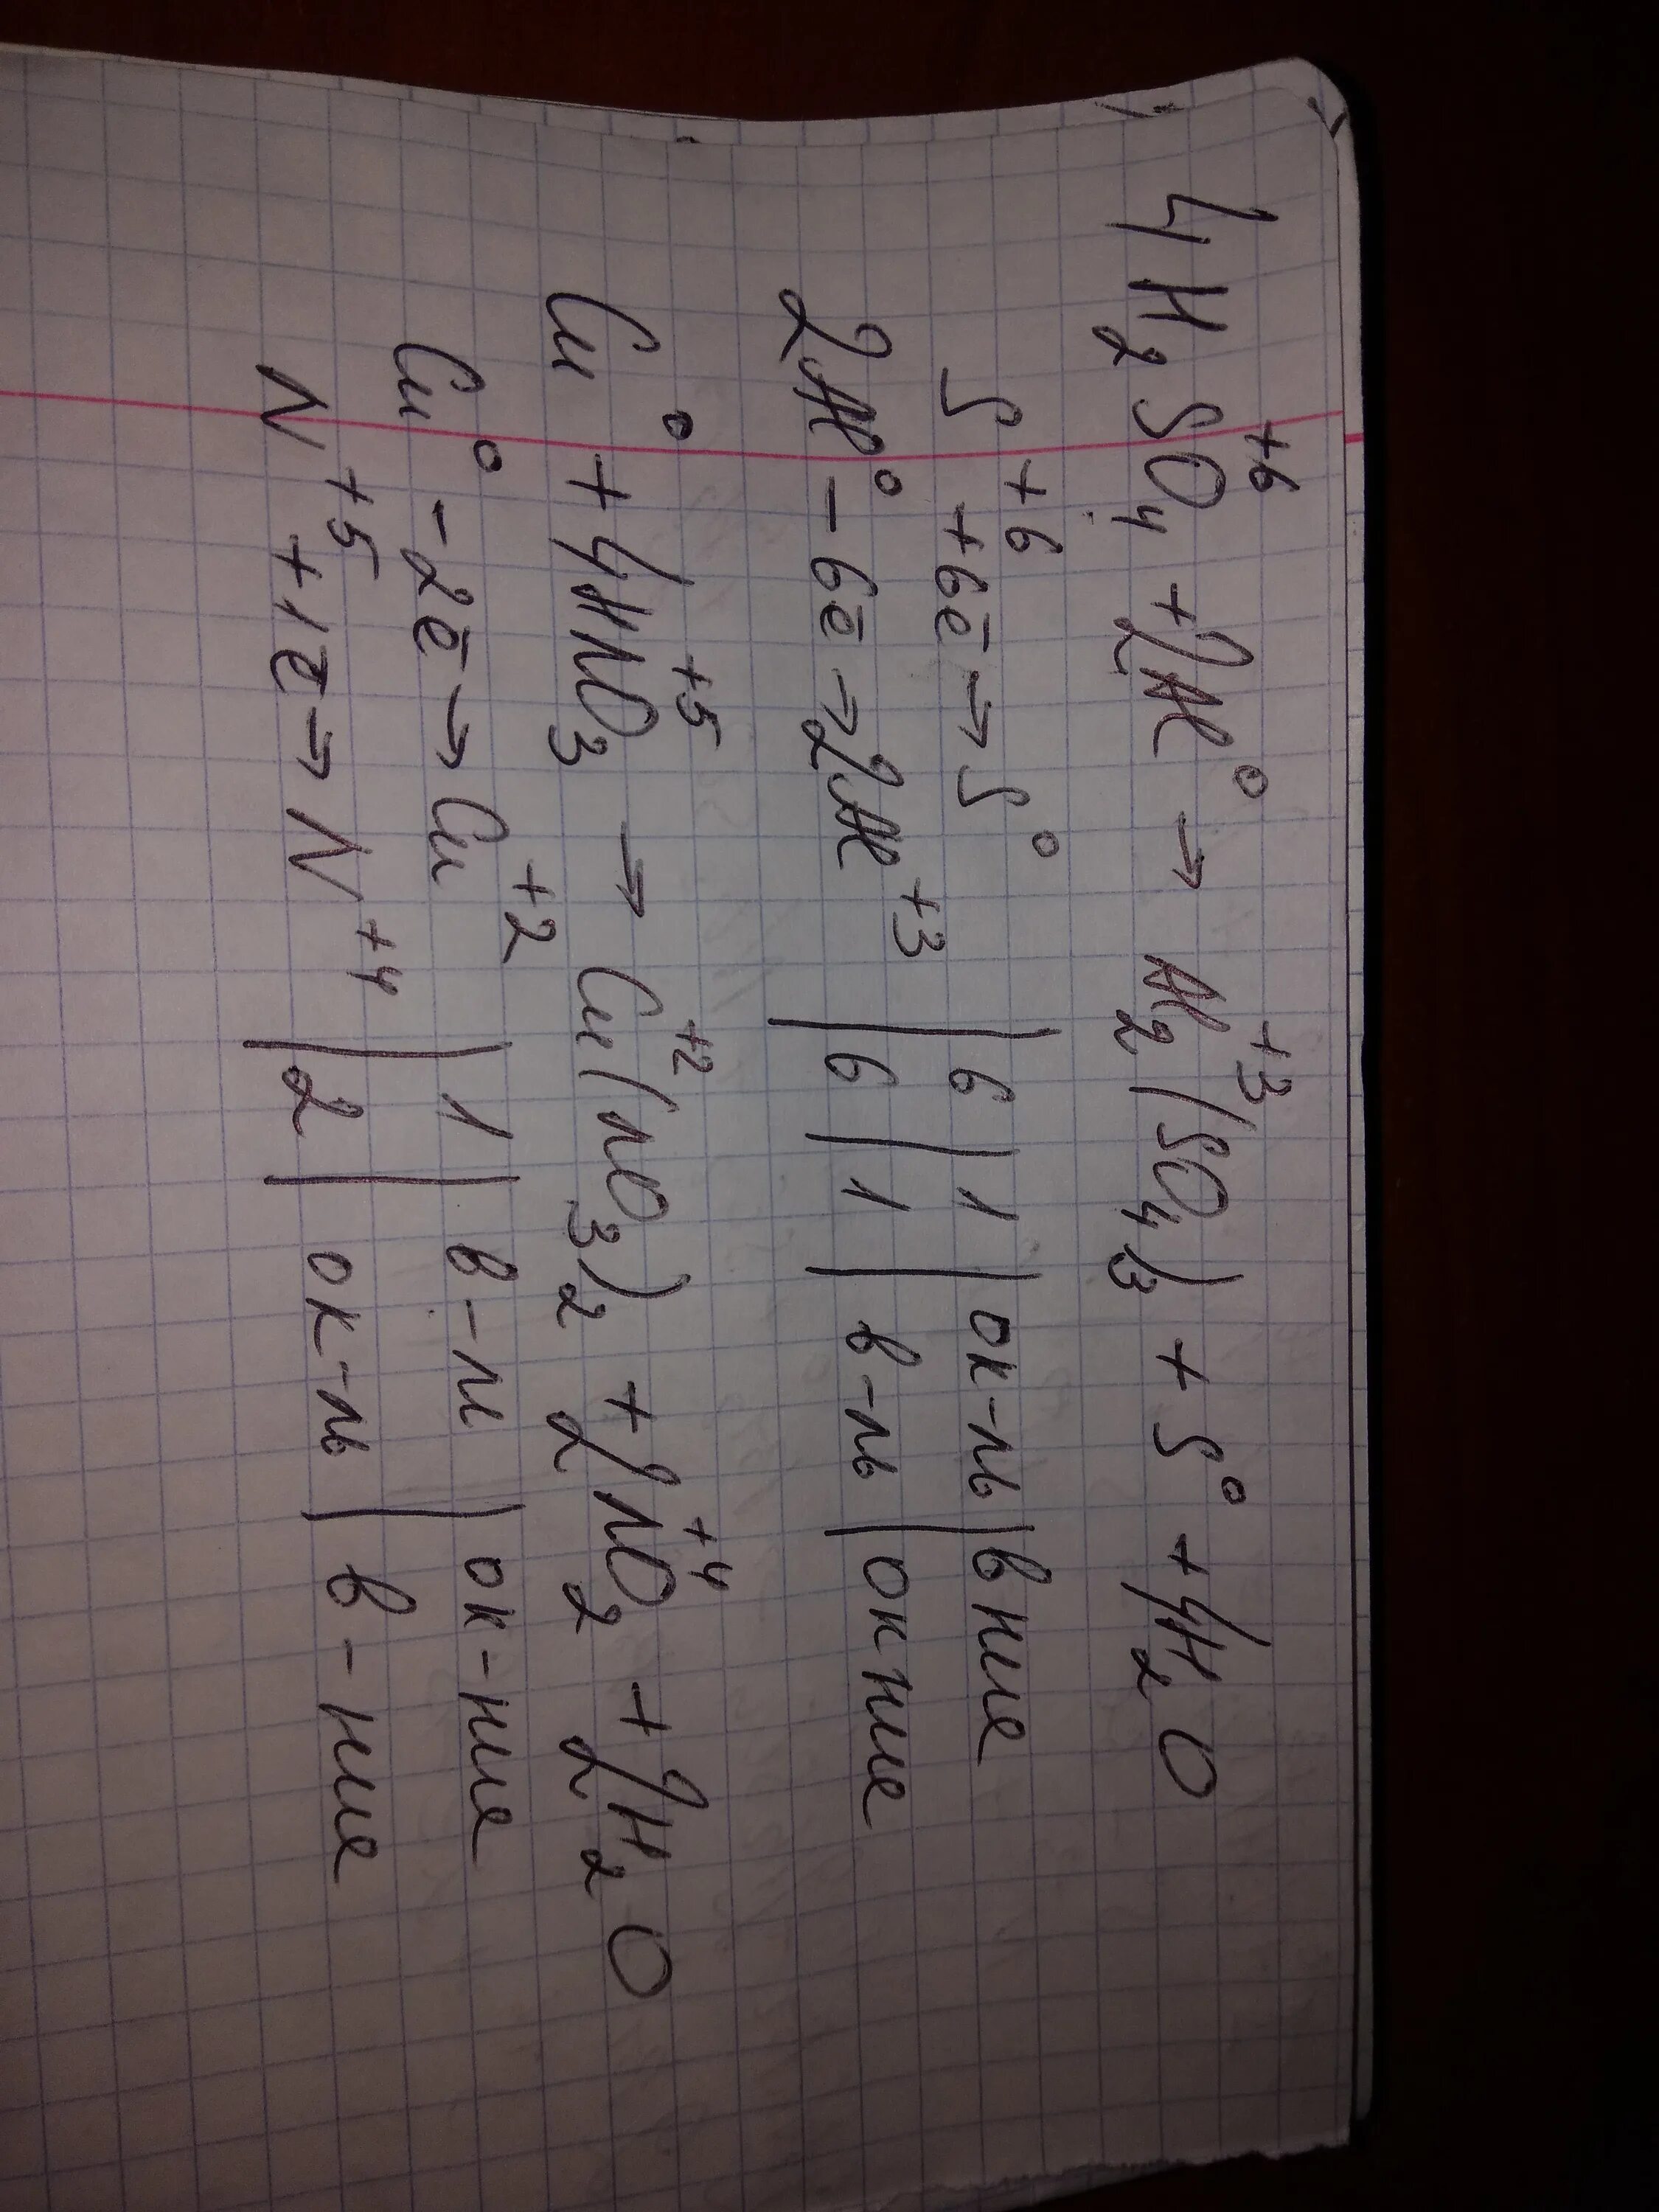 4H₂S⁺⁶O₄ + 2Al⁰ → Al₂⁺³(SO₄)₃ + S⁰ + 4H₂O
S⁺⁶ + 6ē → S⁰ | 6 | 1 | ок-ль | в ние
2Al⁰ - 6ē → 2Al⁺³ | 6 | 1 | в-ль | ок ние
Cu⁰ + 4HN⁺⁵O₃ → Cu⁺²(NO₃)₂ + 2N⁺⁴O₂ + 2H₂O
Cu⁰ - 2ē → Cu⁺² | 1 | в-ль | ок-ние
N⁺⁵ + 1ē → N⁺⁴ | 2 | ок-ль | в-ние